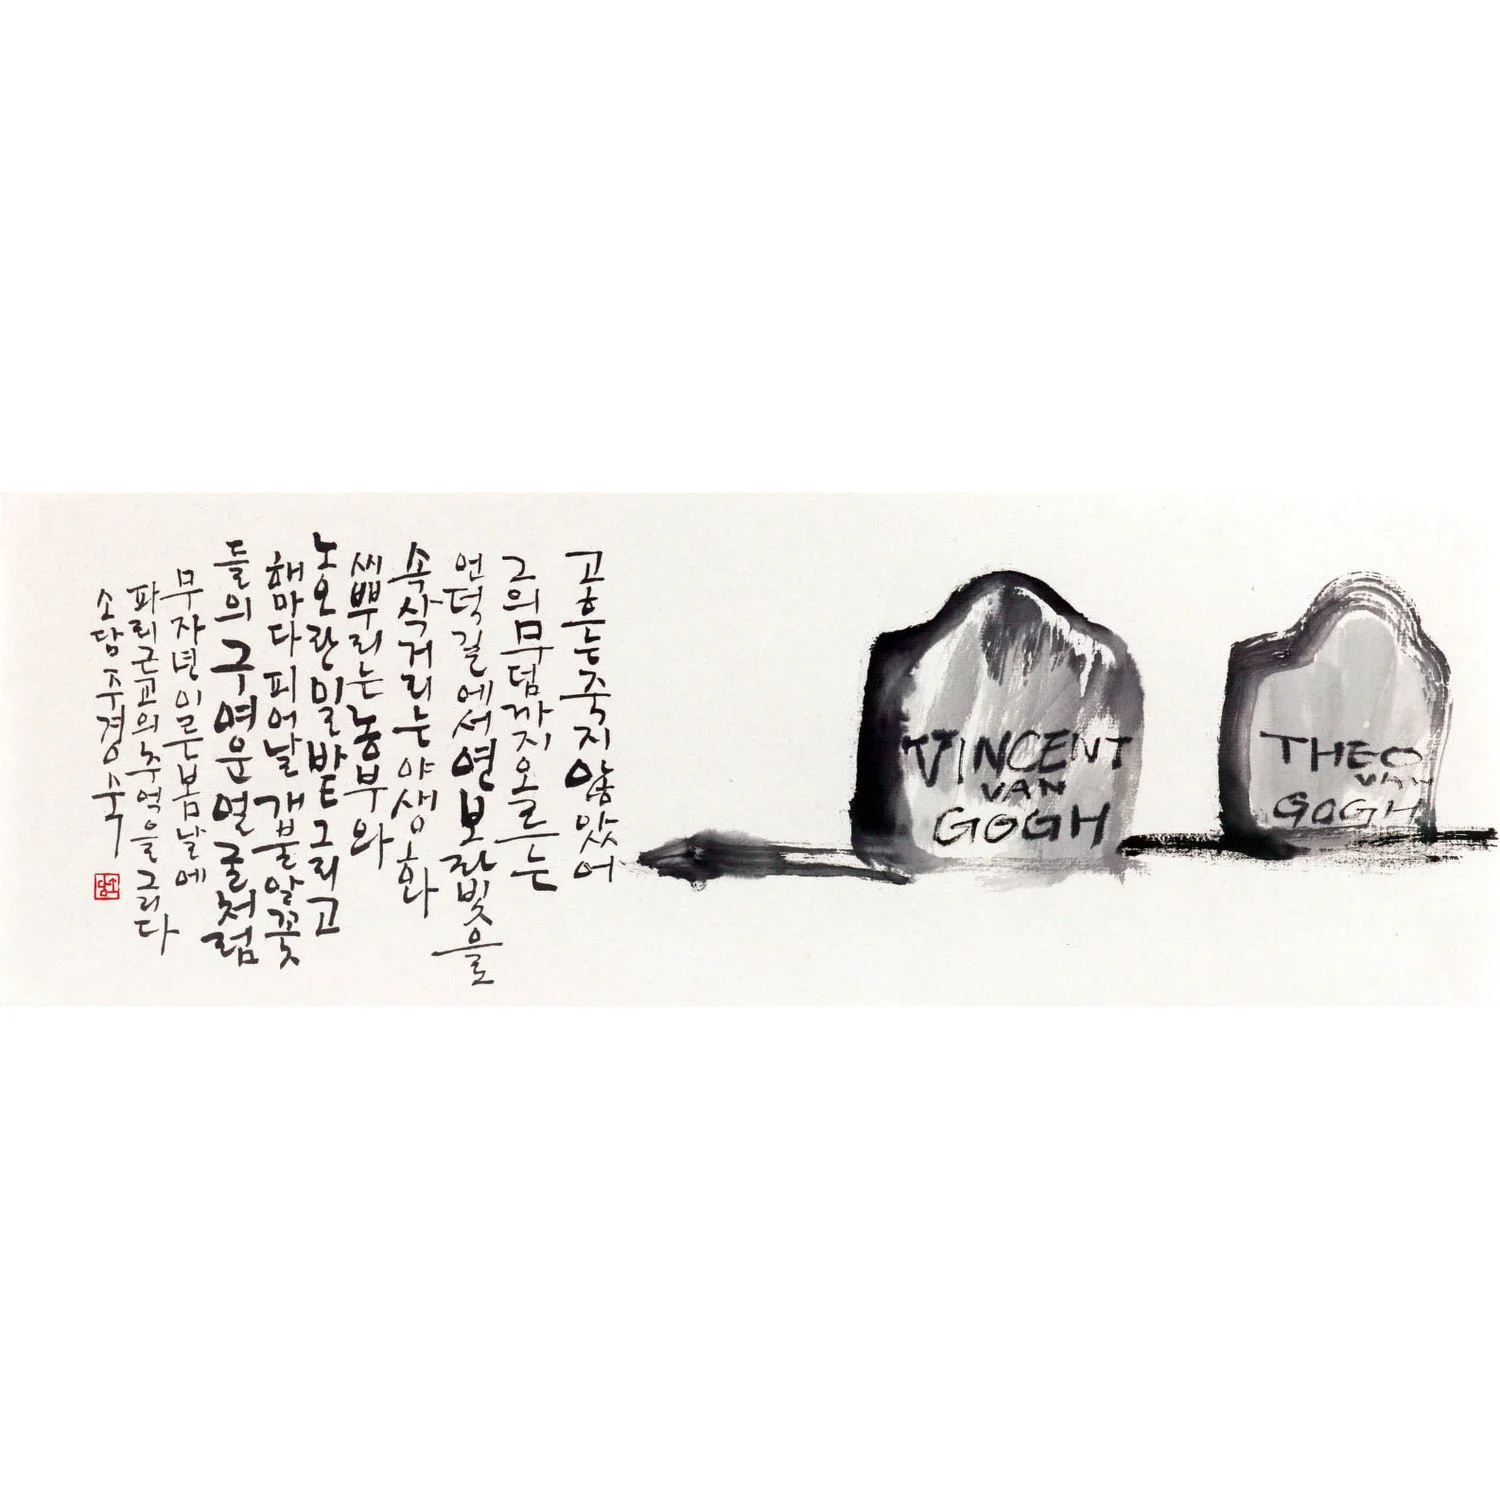 고흐는죽지않았어
그의무덤까지오르는
언덕길에서연보랏빛을
속삭거리는야생화와
씨뿌리는농부와
노오란밀밭그리고
해마다피어날개불알꽃
들의구여운얼굴처럼
무자년이른봄날에
파리근교의추억을그리다
소담주경숙
VINCENT
VAN
GOGH
THEO
VAN
GOGH